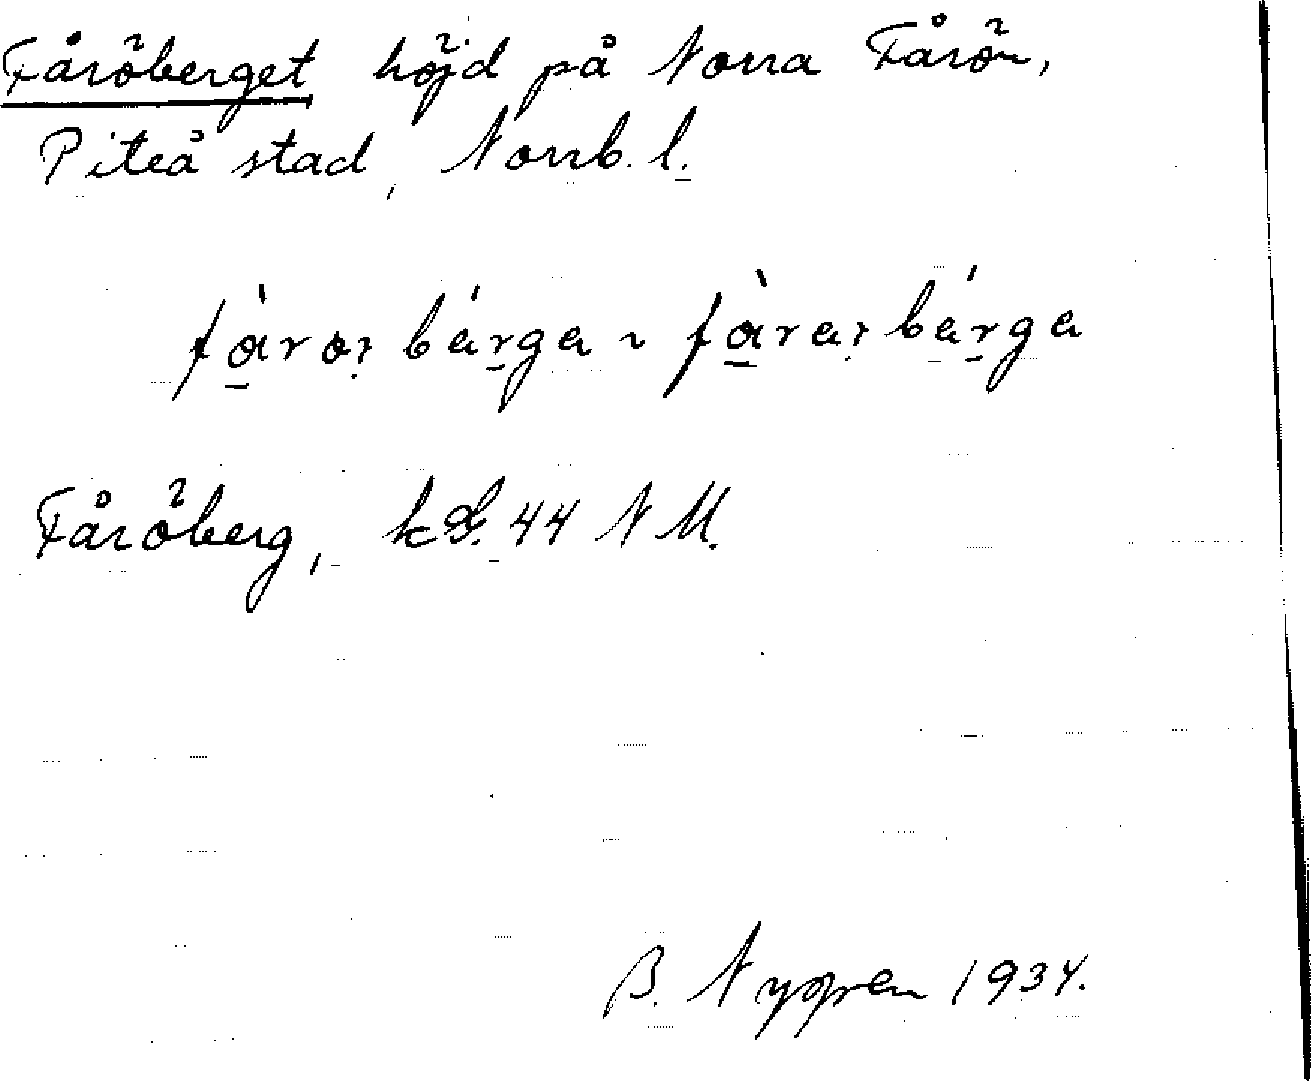 Fåröberget höjd på Norra Fårön,
Piteå stad, Norrb. l.
fàro, bérga ~ fàra, bérga
Fåröberg, kbl. 44 N M.
B. Nygren 1934.